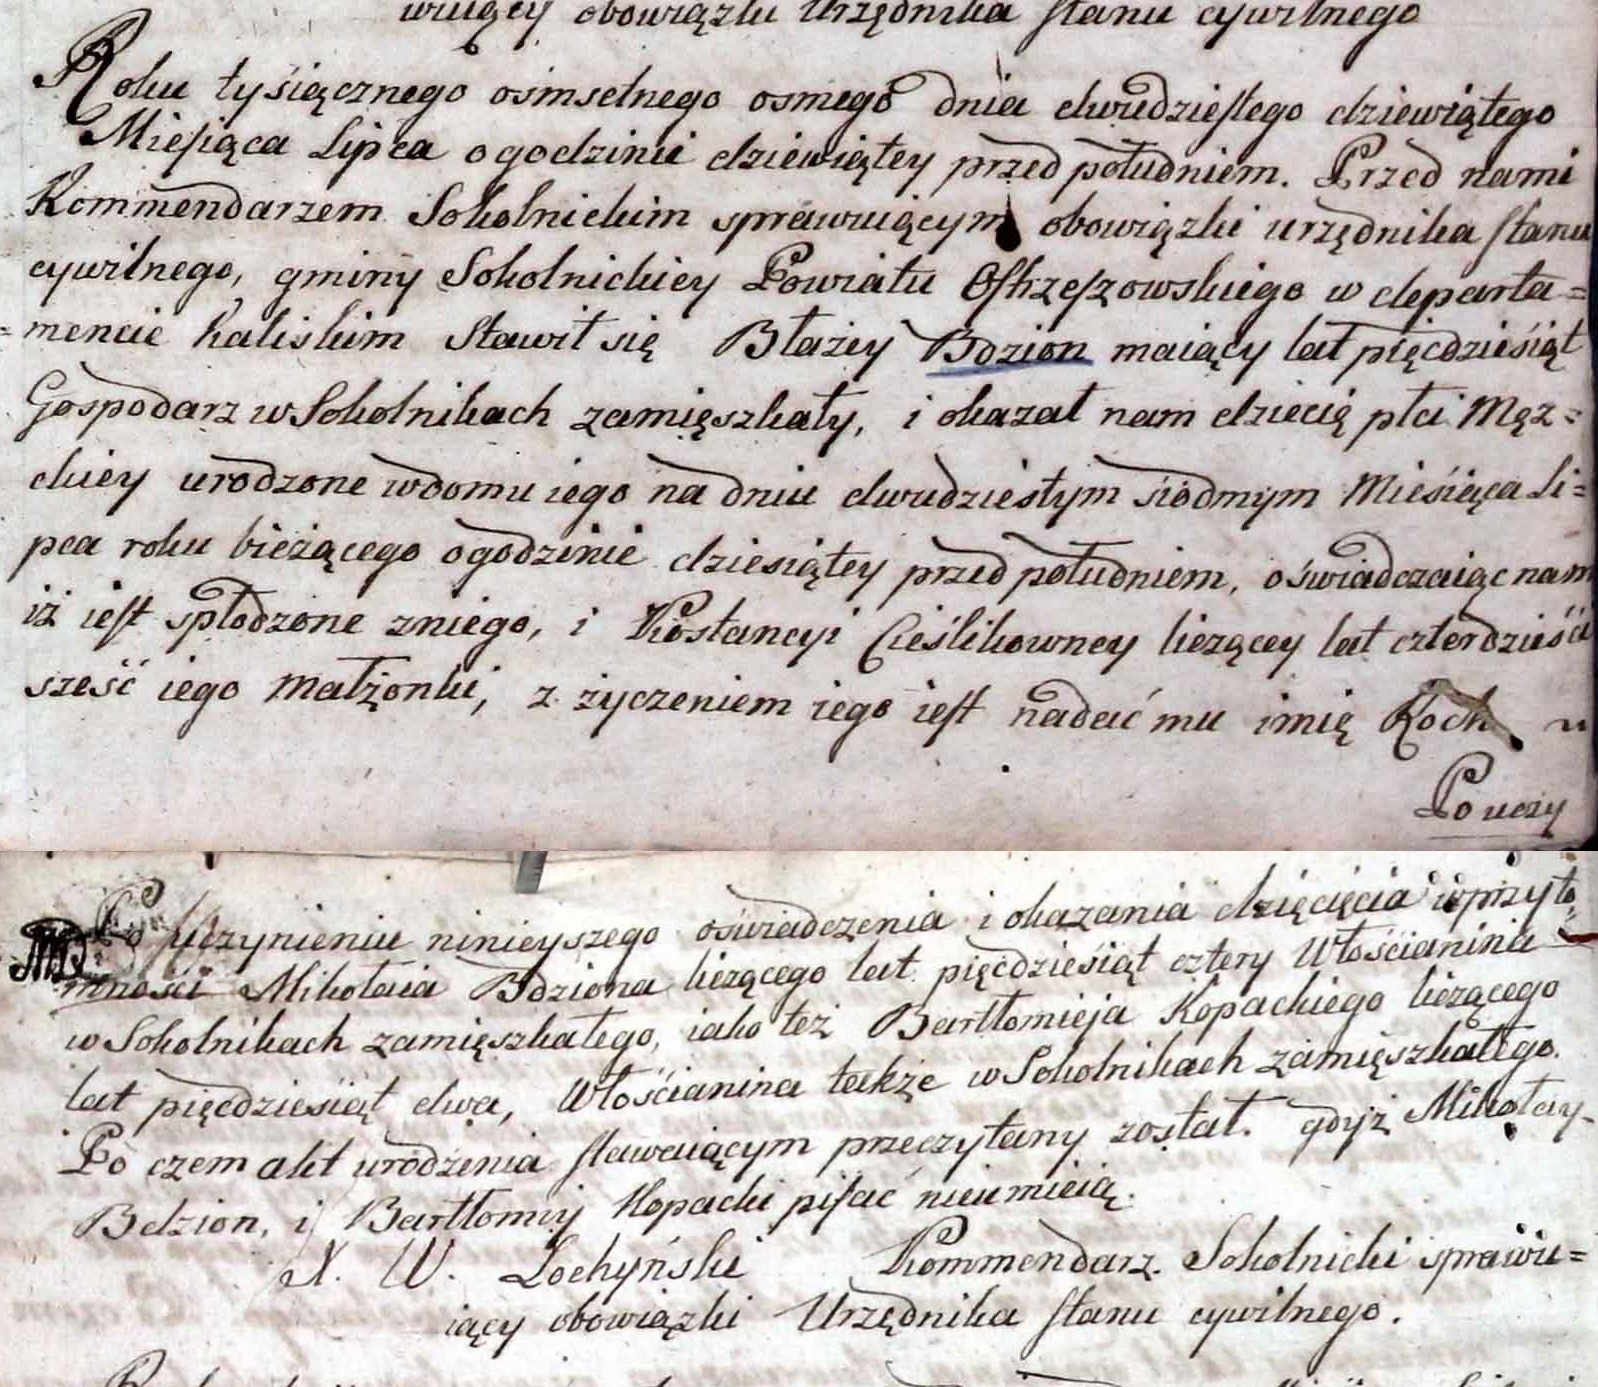 wuiący obowiązki Urzędnika stanu cywilnego
Roku tysiącznego osmsetnego osmego dnia dwudziestego dziewiątego
Miesiąca Lipca o godzinie dziewiątey przed południem. Przed nami
Kommendarzem Sokolnickim sprawuiącym obowiązki urzędnika stanu
cywilnego, gminy Sokolnickiey Powiatu Ostrzeszowskiego w departa=
=mencie Kaliskim Stawił się Błażey Bdzion maiący lat pięcdziesiąt
Gospodarz w Sokolnikach zamięszkały, i okazał nam dziecię płci Męz=
kiey urodzone w domu iego na dniu dwudziestym siodmym Miesiąca Li=
pca roku bieżącego o godzinie dziesiątey przed południem, oświadczaiąc nam
iż iest spłodzone z niego, i Kostancyi Cieślikowney liczącey lat czterdzieści
sześć iego Małżonki, z życzeniem iego iest nadać mu imię Roch
Po uczy
Po Uczynieniu ninieyszego oświadczenia i okazania dzięcięcia w przyto=
mności Mikołaia Bdziona liczącego lat pięcdziesiąt cztery Włościanina
w Sokolnikach zamięszkałego, iako też Bartłomieja Kopackiego liczącego
lat pięcdziesiąt dwa, Włościanina także w Sokolnikach zamięszkałego.
Po czem akt urodzenia stawaiącym przeczytany został. gdyż Mikołay
Bdzion, i Bartłomiy Kopacki pisać nieumieią.
X. W. Łochyński Kommendarz Sokolnicki sprawu=
iący obowiązki Urzędnika stanu cywilnego.